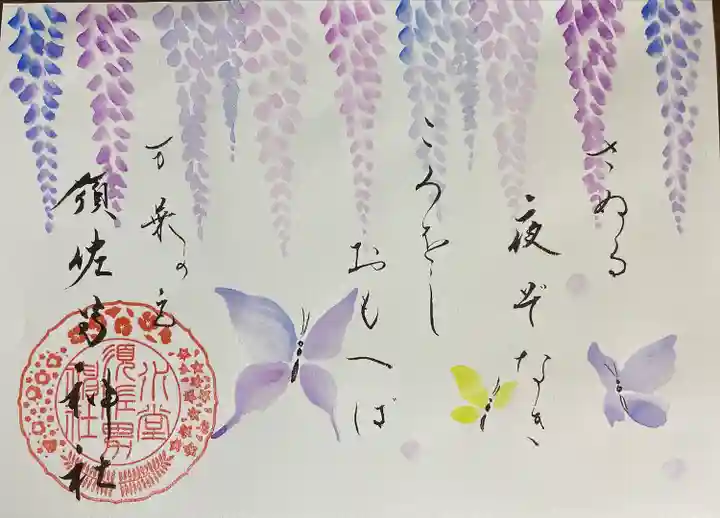 さぬる
夜ぞなき
ころをし
おもへば
万葉の里
須佐男神社
須佐男
神社